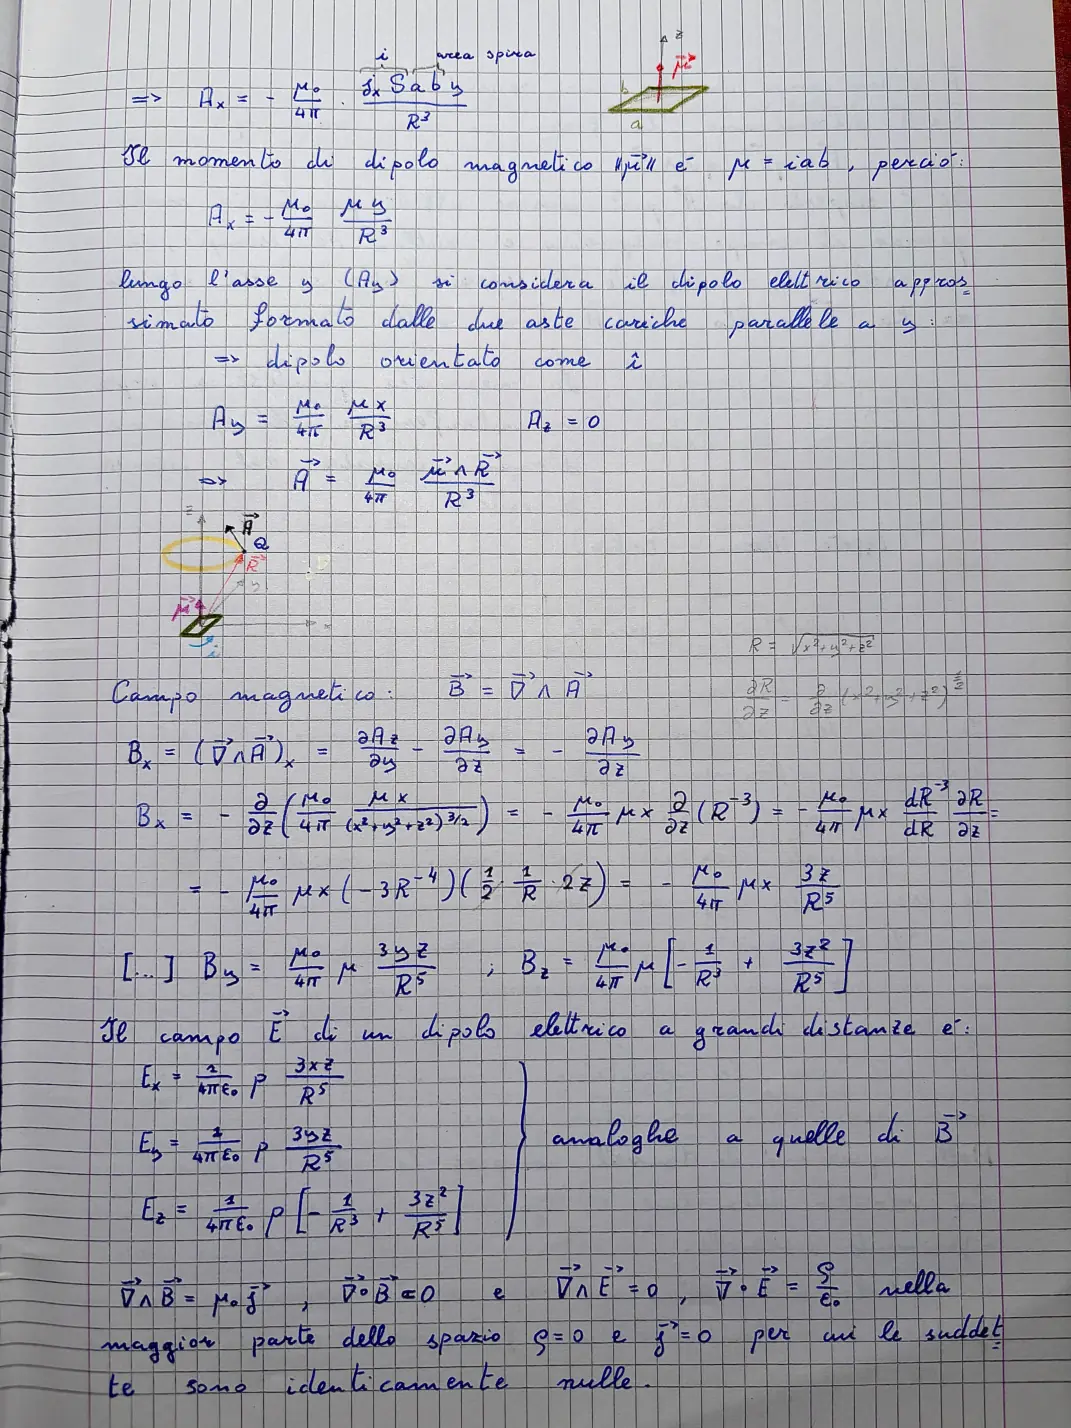 i area spira
=> Aₓ = - μ₀/4π · jₓ S a b y / R³
z
μ⃗
b
a
Il momento di dipolo magnetico "μ⃗" è μ = iab, perciò:
Aₓ = - μ₀/4π μy/R³
lungo l'asse y (Ay) si considera il dipolo elettrico appros
simato formato dalle due aste cariche parallele a y:
=> dipolo orientato come î
Ay = μ₀/4π μx/R³ Az = 0
=> A⃗ = μ₀/4π μ⃗ ∧ R⃗ / R³
z
A⃗
Q
R⃗
y
μ⃗
x
i
R = √(x²+y²+z²)
Campo magnetico: B⃗ = ∇⃗ ∧ A⃗
∂R/∂z = ∂/∂z (x²+y²+z²)^½
Bₓ = (∇⃗∧A⃗)ₓ = ∂Az/∂y - ∂Ay/∂z = - ∂Ay/∂z
Bₓ = - ∂/∂z (μ₀/4π μx/(x²+y²+z²)^3/2) = - μ₀/4π μx ∂/∂z (R⁻³) = - μ₀/4π μx dR⁻³/dR ∂R/∂z =
= - μ₀/4π μx (-3R⁻⁴)(1/2 · 1/R · 2z) = - μ₀/4π μx 3z/R⁵
[...] By = μ₀/4π μ 3yz/R⁵ ; Bz = μ₀/4π μ [- 1/R³ + 3z²/R⁵]
Il campo E⃗ di un dipolo elettrico a grandi distanze è:
Eₓ = 1/4πε₀ p 3xz/R⁵
Ey = 1/4πε₀ p 3yz/R⁵ analoghe a quelle di B⃗
Ez = 1/4πε₀ p [- 1/R³ + 3z²/R⁵]
∇⃗∧B⃗ = μ₀j⃗, ∇⃗•B⃗ = 0 e ∇⃗∧E⃗ = 0, ∇⃗•E⃗ = ρ/ε₀ nella
maggior parte dello spazio ρ=0 e j⃗=0 per cui le suddet
te sono identicamente nulle.